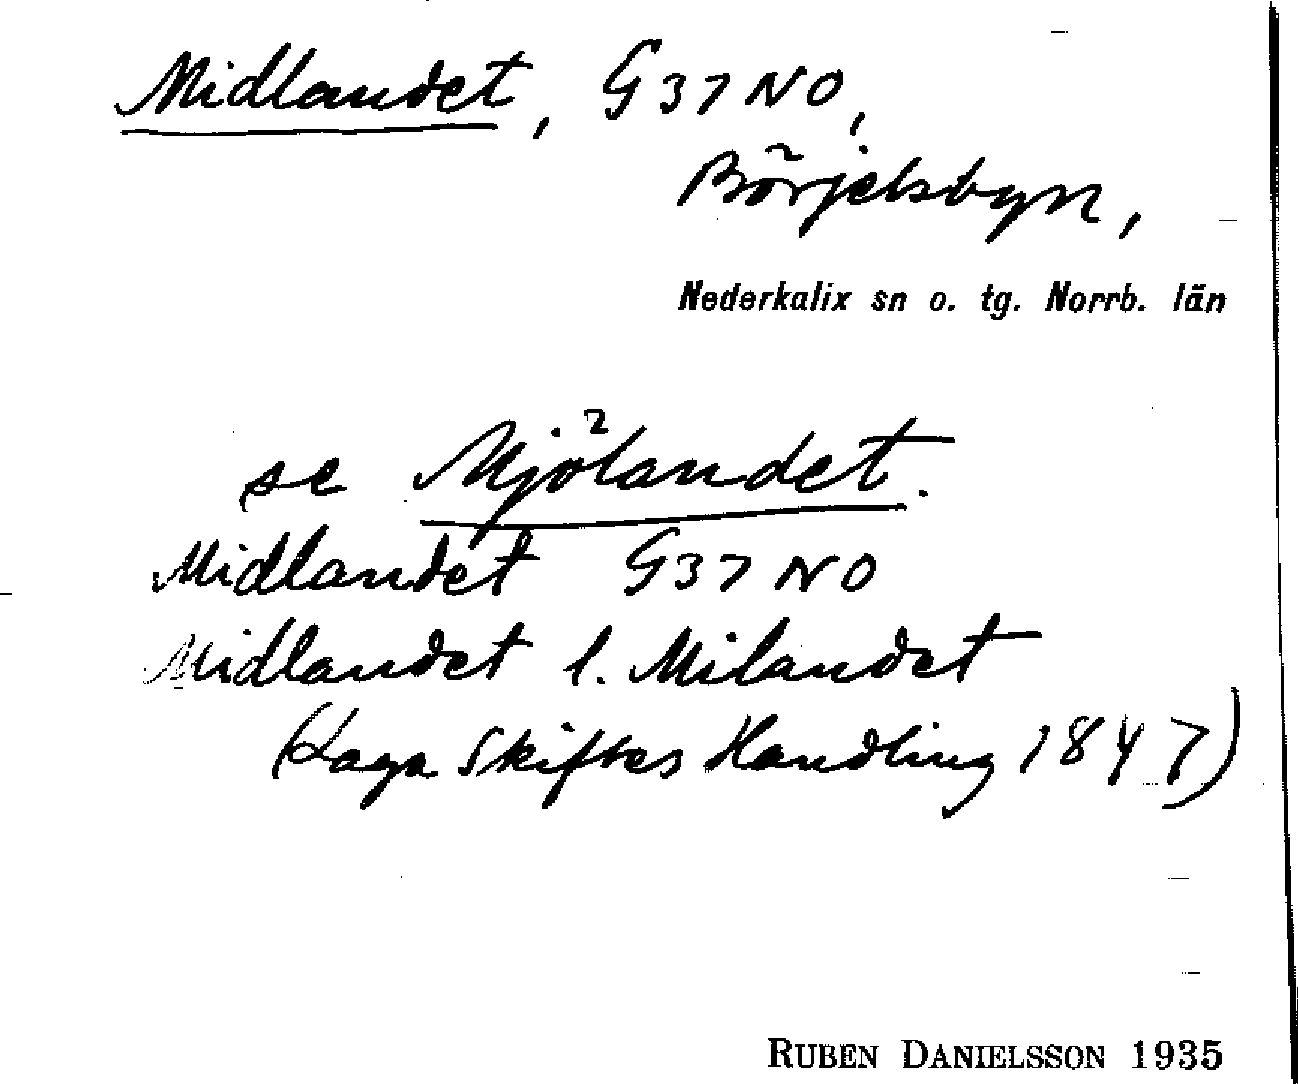 Midlandet, G37NO,
Börjelsbyn,
Nederkalix sn o. tg. Norrb. län
se Mjölandet.
Midlandet G37NO
Midlandet l. Milandet
(Laga Skiftes Handling 1847)
RUBEN DANIELSSON 1935